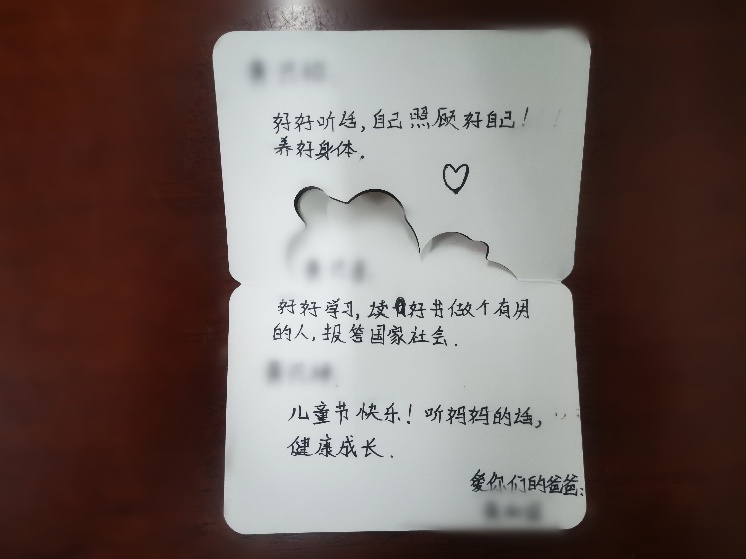 好好听话，自己照顾好自己！
养好身体．
好好学习，读好书做个有用
的人，报答国家社会．
儿童节快乐！听妈妈的话，
健康成长．
爱你们的爸爸：